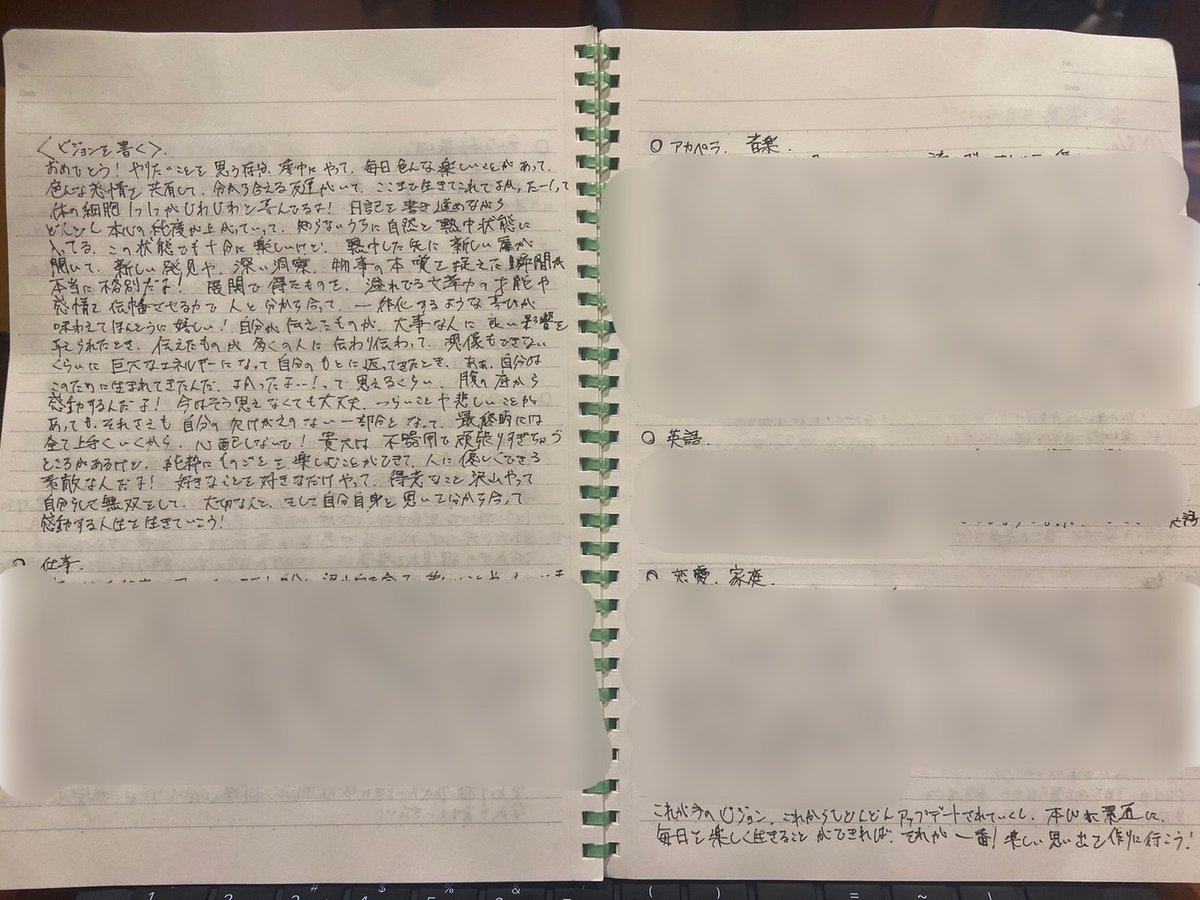 No.
Date
<ビジョンを書く>.
おめでとう! やりたいことを思う存分、夢中にやって、毎日色んな楽しいことがあって、
色んな感情を共有して、分かり合える友達がいて、ここまで生きてこれてよかったーって
体の細胞1つ1つがじわじわと喜んでるよ! 日記を書き進めながら
どんどん本心の純度が上がっていって、知らないうちに自然と熱中状態に
入ってる。この状態でも十分に楽しいけど、熱中した先に新しい扉が
開いて、新しい発見や、深い洞察、物事の本質を捉えた瞬間が
本当に格別だよ! 展開で得たものを、溢れでる文章力の才能や
感情を伝播させる力で人と分かち合って、一体化するような喜びが
味わえてほんとうに嬉しい! 自分が伝えたものが、大事な人に良い影響を
与えられたとき、伝えたものが多くの人に伝わり伝わって、想像もできない
くらいに巨大なエネルギーになって自分のもとに返ってきたとき、ああ、自分は
このために生まれてきたんだ、よかったよー!って思えるくらい、腹の底から
感動するんだよ! 今はそう思えなくても大丈夫、つらいことや悲しいことが
あっても、それさえも自分の欠けがえのない一部分となって、最終的には
全て上手くいくから、心配しないで! 貴大は不器用で頑張りすぎちゃう
ところがあるけど、純粋にものごとを楽しむことができて、人に優しくできる
素敵なんだよ! 好きなことを好きなだけやって、得意なこと沢山やって
自分らしく無双をして、大切な人と、そして自分自身と思いて分かち合って
感動する人生を生きていこう!
○ 仕事.
No.
Date
○ アカペラ、音楽.
○ 英語.
○ 恋愛、家庭.
これが今のビジョン、これからもどんどんアップデートされていくし、本心に素直に、
毎日を楽しく生きることができれば、それが一番! 楽しい思い出を作りに行こう!